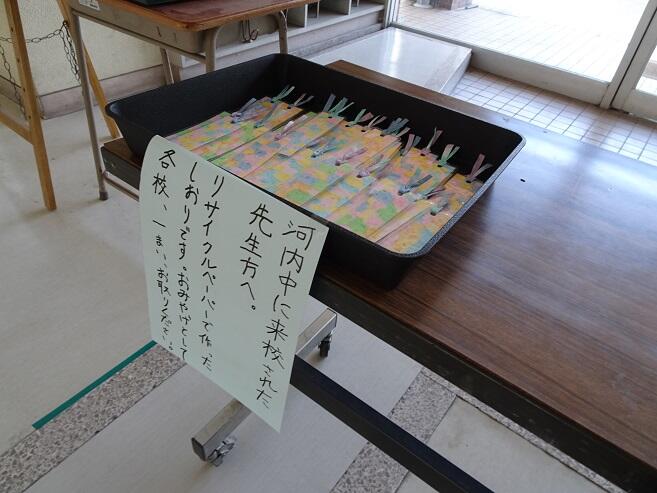 河内中に来校された
先生方へ。
リサイクルペーパーで作った
しおりです。おみやげとして
各校、一まい、お取りください。